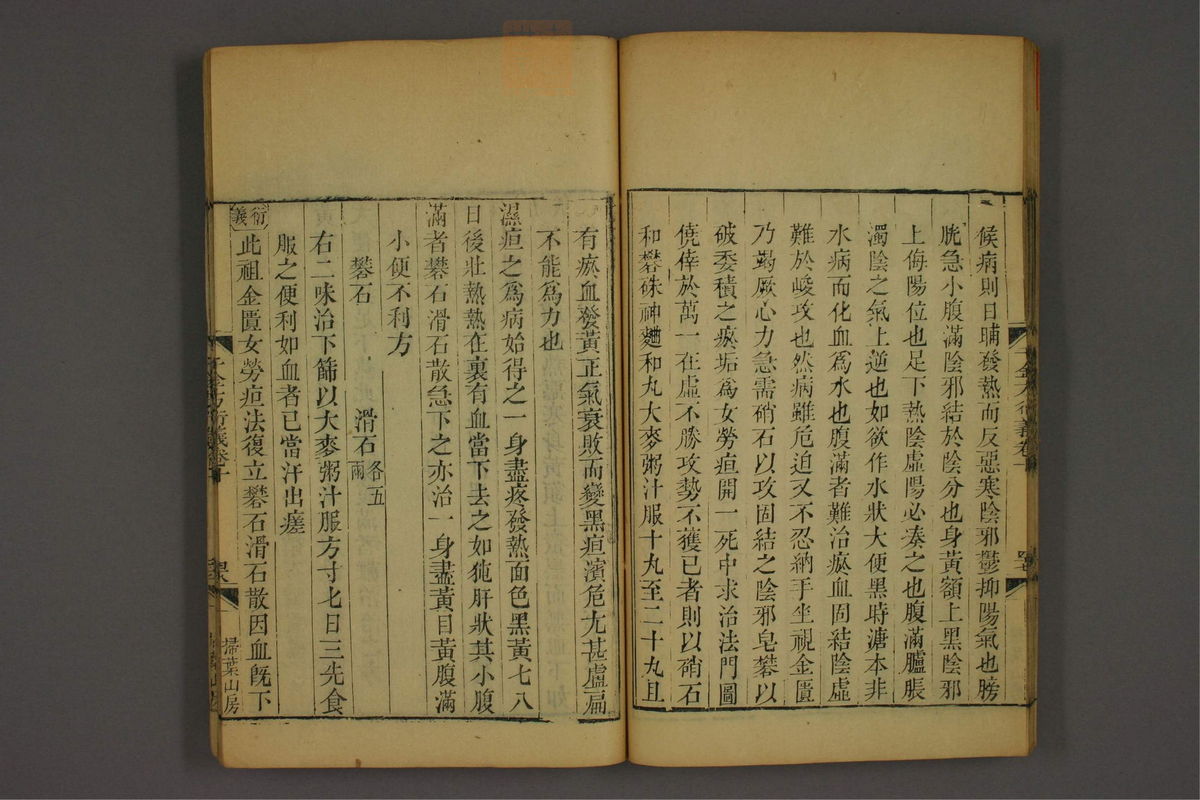 候病則日晡發熱而反惡寒陰邪鬱抑陽氣也膀
胱急小腹滿陰邪結於陰分也身黃額上黑陰邪
上侮陽位也足下熱陰虛陽必湊之也腹滿臚脹
濁陰之氣上逆也如欲作水狀大便黑時溏本非
水病而化血為水也腹滿者難治瘀血固結陰虛
難於峻攻也然病雖危迫又不忍納手坐視金匱
乃竭厥心力急需硝石以攻固結之陰邪皂礬以
破委積之瘀垢為女勞疸開一死中求治法門圖
僥倖於萬一在虛不勝攻勢不獲已者則以硝石
和礬硃神麯和丸大麥粥汁服十丸至二十丸且
有瘀血發黃正氣衰敗而變黑疸濱危尤甚盧扁
不能為力也
濕疸之為病始得之一身盡疼發熱面色黑黃七八
日後壯熱熱在裏有血當下去之如㹠肝狀其小腹
滿者礬石滑石散急下之亦治一身盡黃目黃腹滿
小便不利方
礬石 滑石各五兩
右二味治下篩以大麥粥汁服方寸匕日三先食
服之便利如血者已當汗出瘥
衍義
此祖金匱女勞疸法復立礬石滑石散因血既下
千金方衍義卷十
掃葉山房